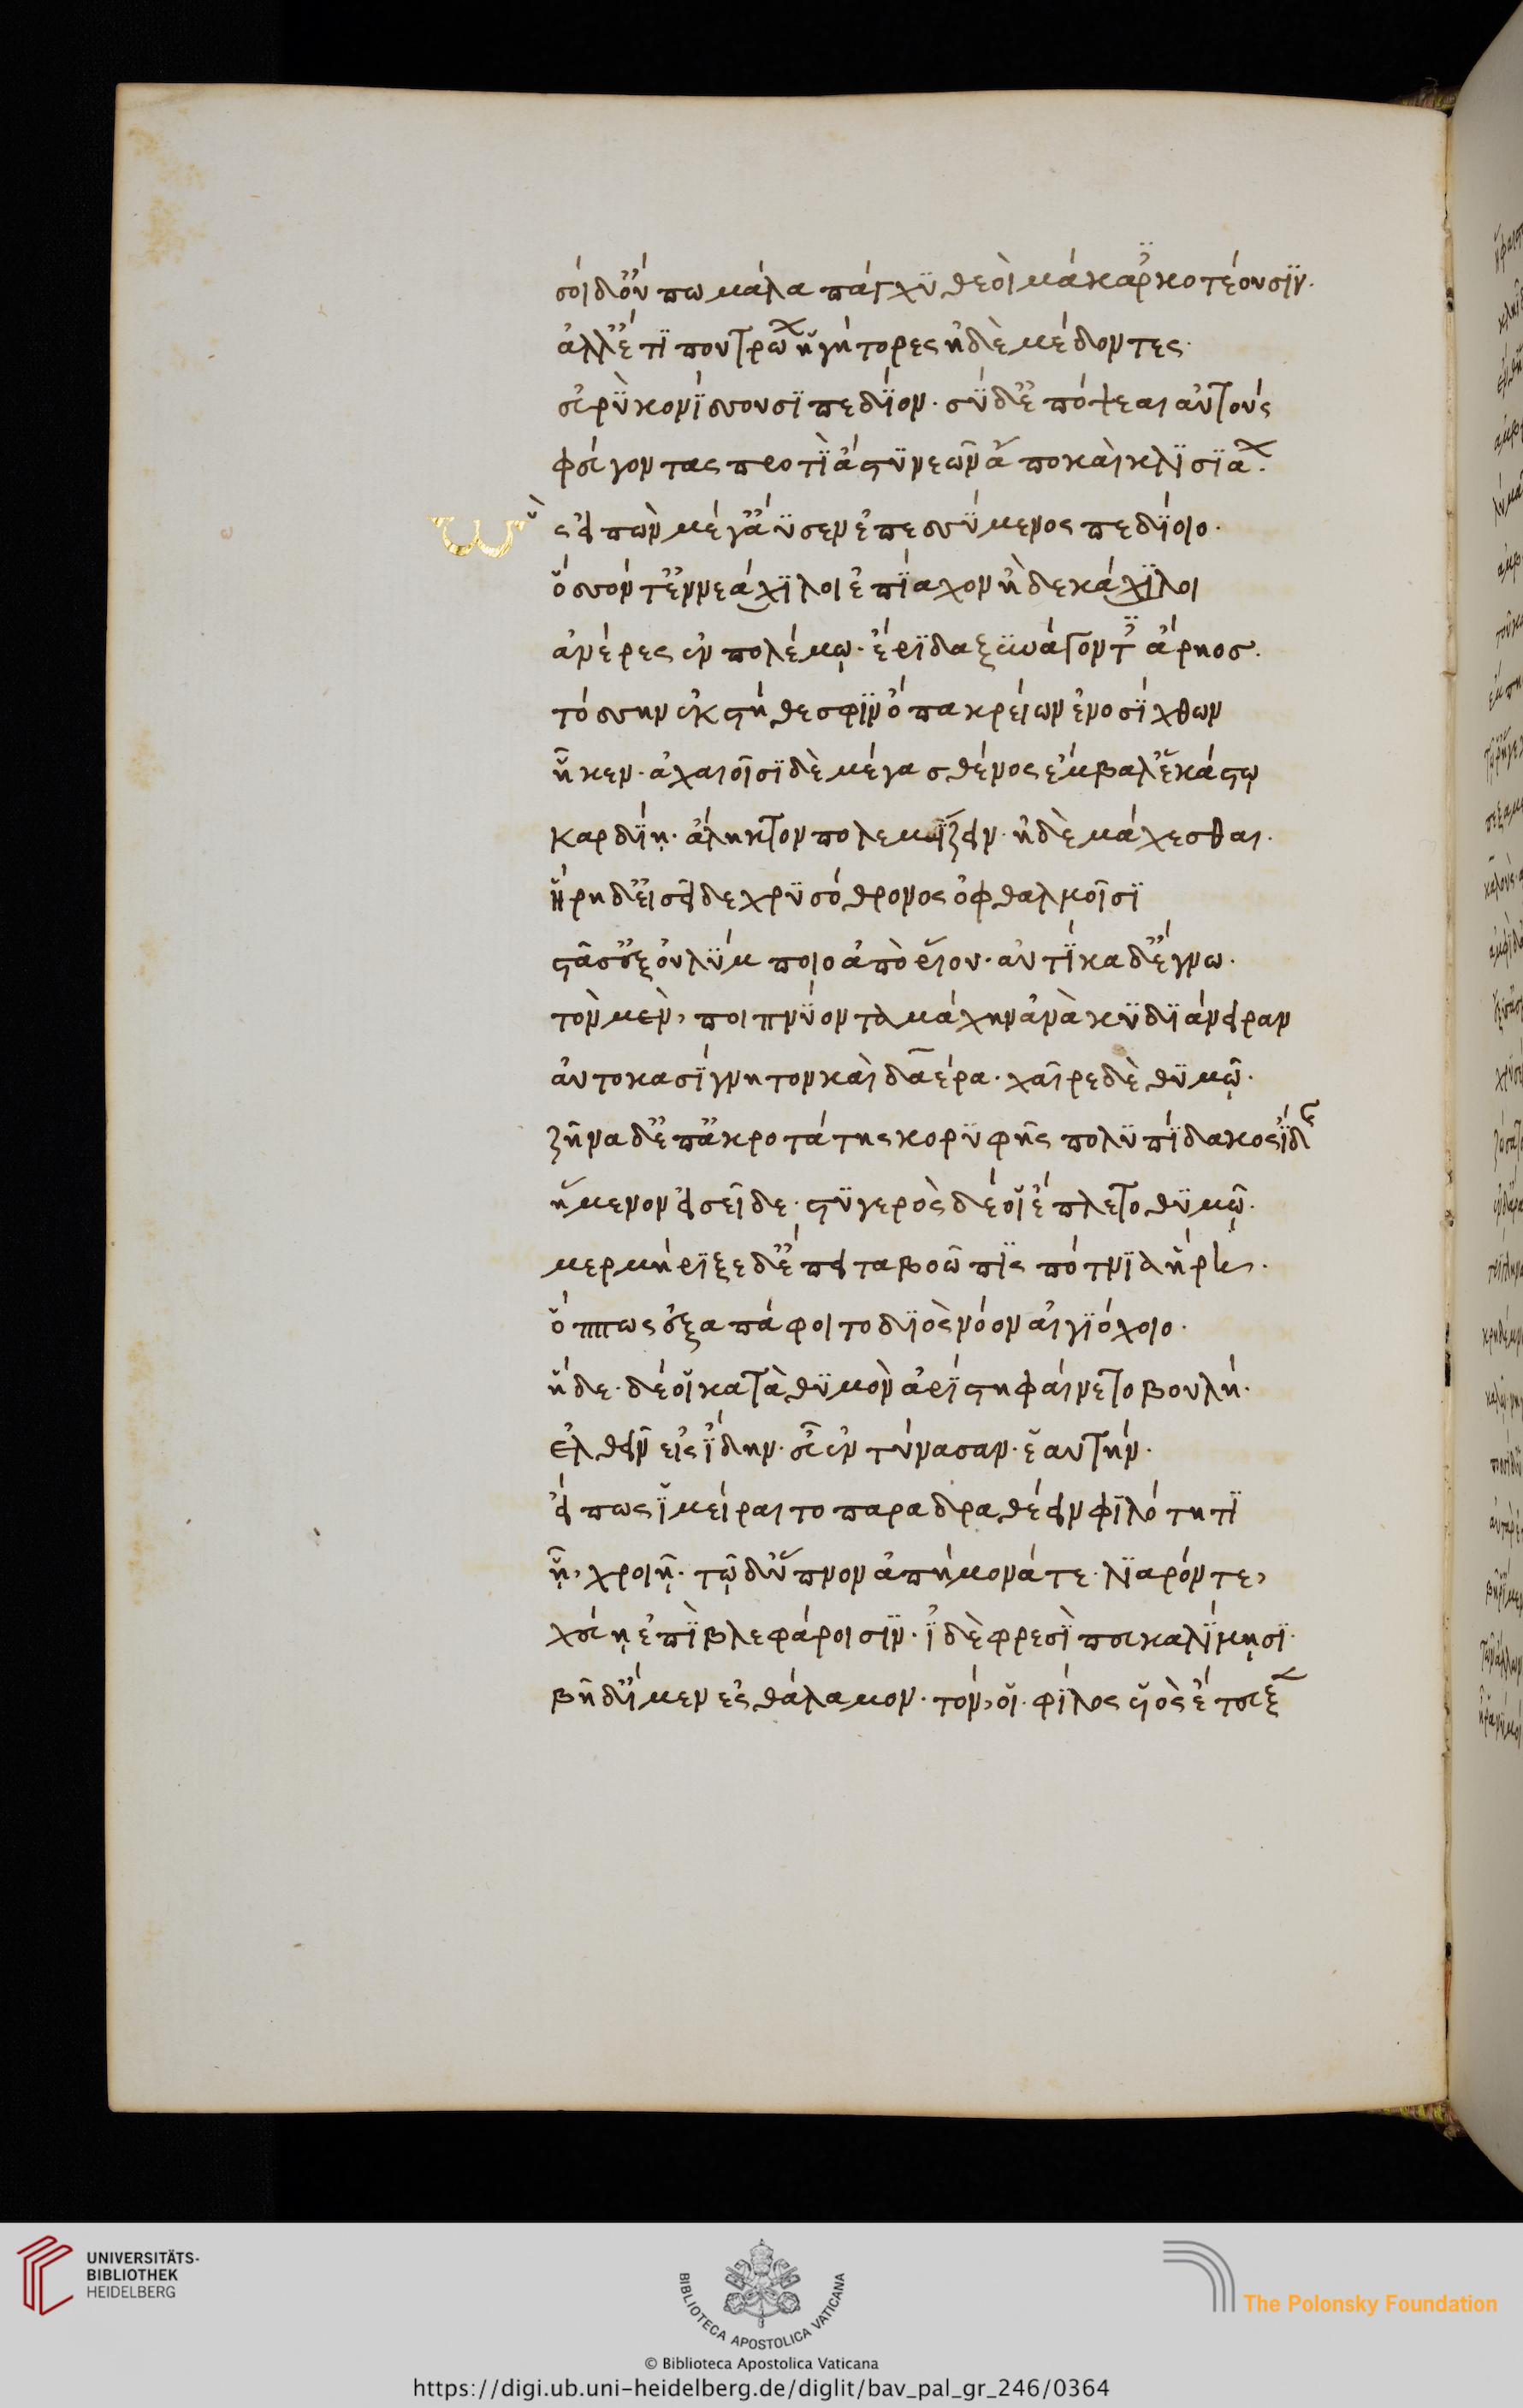 σοὶ δ' οὔ πω μάλα πάγχϋ θεοὶ μάκαρ̈ κοτέουσϊν·
ἀλλ' ἔτϊ που τρώων ἡγήτορες ἠδὲ μέδοντες·
εὐρὺ κονΐσουσϊ πεδΐον· σὺ δ' ἐπόψεαι αὐτοὺς
φεύγοντας προτὶ ἄστϋ νεῶν ἄπο καὶ κλϊσϊάων·
ὣς εἰπὼν μέγ' ἄϋσεν ἐπεσσΰμενος πεδΐοιο·
ὅσσόν τ' ἐννεάχϊλοι ἐπΐαχον ἢ δεκάχϊλοι
ἀνέρες ἐν πολέμῳ· ἔρϊδα ξϋνάγοντ̈ες ἄρηος·
τόσσην ἐκ στήθεσφϊν ὄπα κρείων ἐνοσΐχθων
ἧκεν· ἀχαιοῖσϊ δὲ μέγα σθένος ἔμβαλ' ἑκάστῳ
καρδΐῃ· ἄληκτον πολεμΐζειν· ἠδὲ μάχεσθαι·
ἥρη δ' εἰσεῖδε χρϋσόθρονος ὀφθαλμοῖσϊ
στᾶσ' ἐξ οὐλΰμποιο ἀπὸ ῥίου· αὐτΐκα δ' ἔγνω·
τὸν μὲν, ποιπνΰοντα μάχην ἀνὰ κϋδϊάνειραν
αὐτοκασΐγνητον καὶ δᾱέρα· χαῖρε δὲ θϋμῷ·
ζῆνα δ' ἐπ' ἀκροτάτης κορϋφῆς πολϋπΐδακος ἴδης
ἥμενον εἰσεῖδε· στϋγερὸς δέ οἱ ἔπλετο θϋμῷ·
μερμήρϊξε δ' ἔπειτα βοῶπϊς πότνϊα ἥρη·
ὅππως ἐξαπάφοιτο δϊὸς νόον αἰγϊόχοιο·
ἥδε· δέ οἱ κατὰ θϋμὸν ἀρΐστη φαίνετο βουλή·
ἐλθεῖν εἰς ἴδην· εὖ ἐντύνασαν· ἓ αὐτήν·
εἴ πως ἱμείραιτο παραδραθέειν φϊλότητϊ
ᾗ, χροιῇ· τῷ δ' ὕπνον ἀπήμονά τε· λϊαρόν τε,
χεύῃ ἐπὶ βλεφάροισϊν· ἰδὲ φρεσὶ πευκαλΐμῃσϊ·
βῆ δ' ἴμεν ἐς θάλαμον· τόν, οἱ· φίλος υἱὸς ἔτευξεν
UNIVERSITÄTS-
BIBLIOTHEK
HEIDELBERG
BIBLIOTECA APOSTOLICA VATICANA
The Polonsky Foundation
© Biblioteca Apostolica Vaticana
https://digi.ub.uni-heidelberg.de/diglit/bav_pal_gr_246/0364